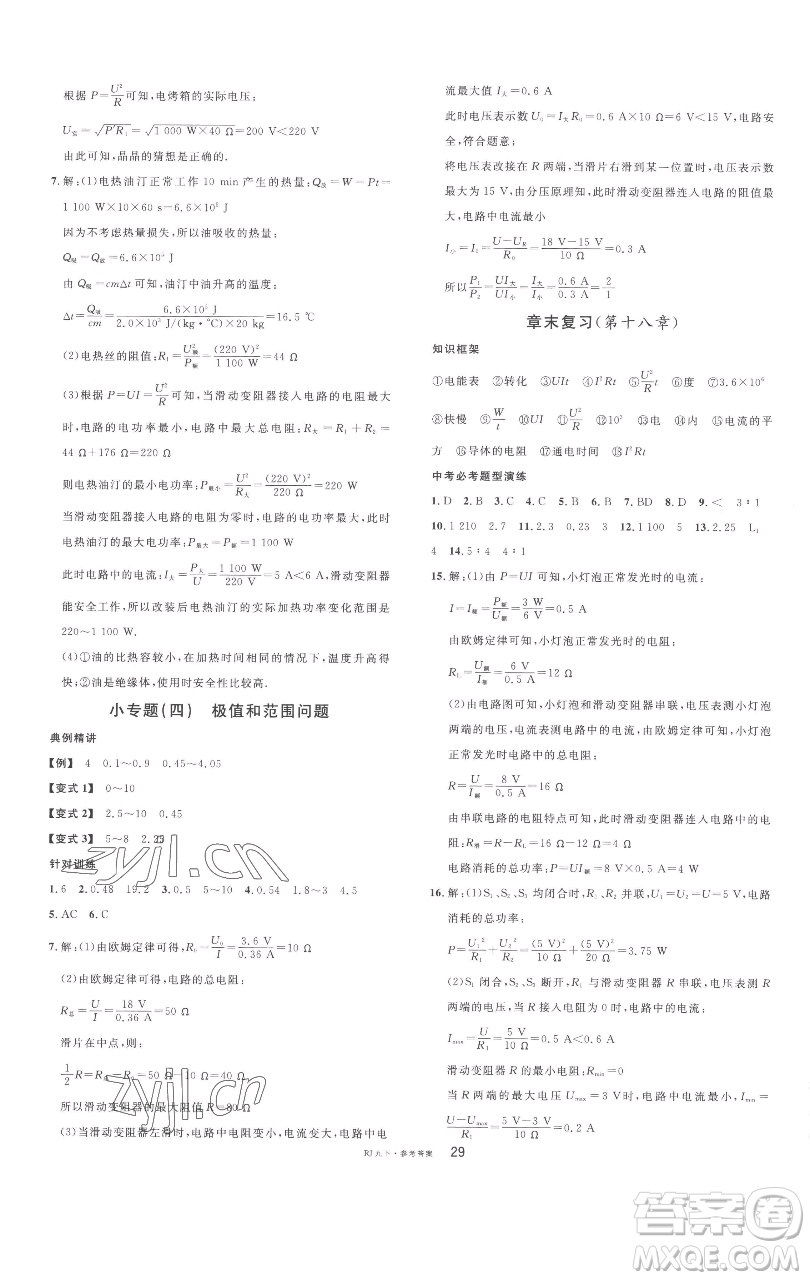 根据 P=U²/R 可知,电烤箱的实际电压:
U实=√(P′R₁)=√(1 000 W×40 Ω)=200 V<220 V
由此可知,晶晶的猜想是正确的.
7.解:(1)电热油汀正常工作 10 min 产生的热量:Q放=W=Pt=
1 100 W×10×60 s=6.6×10⁵ J
因为不考虑热量损失,所以油吸收的热量:
Q吸=Q放=6.6×10⁵ J
由 Q吸=cmΔt 可知,油汀中油升高的温度:
Δt=Q吸/cm=6.6×10⁵ J/(2.0×10³ J/(kg·℃)×20 kg)=16.5 ℃
(2)电热丝的阻值:R₁=U额²/P额=(220 V)²/1 100 W=44 Ω
(3)根据 P=UI=U²/R 可知,当滑动变阻器接入电路的电阻最大
时,电路的电功率最小,电路中的最大总电阻:R大=R₁+R₂=
44 Ω+176 Ω=220 Ω
则电热油汀的最小电功率:P最小=U²/R大=(220 V)²/220 Ω=220 W
当滑动变阻器接入电路的电阻为零时,电功率最大,此时只有
电热丝工作,电热油汀的最大功率:P最大=P额=1 100 W
此时电路中的电流:I=P大/U=1 100 W/220 V=5 A<6 A,滑动变阻器
能安全工作,所以改装后电热油汀的实际加热功率变化范围是
220~1 100 W.
(4)①油的比热容较小,在加热时间相同的情况下,温度升高得
快;②油是绝缘体,使用时安全性能好.
小专题(四) 极值和范围问题
典例精讲
【例】 4 0.1~0.9 0.45~4.05
【变式 1】 0~10
【变式 2】 2.5~10 0.45
【变式 3】 5~8 2.25
针对训练
1.6 2.0.48 19.2 3.0.5 5~10 4.0.54 1.8~3 4.5
5.AC 6.C
7.解:(1)由欧姆定律可得,R₀=U₀/I=3.6 V/0.36 A=10 Ω
(2)由欧姆定律可得,电路的总电阻:
R总=U/I=18 V/0.36 A=50 Ω
滑片在中点,则有:
½R=R总-R₀=50 Ω-10 Ω=40 Ω
所以滑动变阻器的最大阻值 R=80 Ω
(3)当滑动变阻器左滑时,电路中电阻变小,电流变大,故电
流最大值 I大=0.6 A
此时电压表示数 U₀=I大R₀=0.6 A×10 Ω=6 V<15 V,电路安
全,符合题意;
将电压表改接在 R 两端,当滑片右滑到某一位置时,电压表示数
最大为 15 V,由分压原理知,此时滑动变阻器连入电路的阻值最
大,电路中电流最小
I小=I₀=(U-UR)/R₀=(18 V-15 V)/10 Ω=0.3 A
所以 P₁/P₂=UI大/UI小=I大/I小=0.6 A/0.3 A=2/1
章末复习(第十八章)
知识框架
①电能表 ②转化 ③UIt ④I²Rt ⑤U²/R t ⑥度 ⑦3.6×10⁶
⑧快慢 ⑨W/t ⑩UI ⑪U²/R ⑫10³ ⑬I²R ⑭UI ⑮电流的平
方 ⑯导体的电阻 ⑰通电时间 ⑱I²Rt
中考必考题型演练
1.D 2.B 3.C 4.C 5.B 6.B 7.BD 8.D 9.< 3∶1
10.1 210 2.7 11.2.3 0.23 3 12.1 100 5 13.2.25 L₁
4 14.5∶4 4∶1
15.解:(1)由 P=UI 可知,小灯泡正常发光时的电流:
I=I额=P额/U额=3 W/6 V=0.5 A
由欧姆定律可知,小灯泡正常发光时的电阻:
RL=U额/I额=6 V/0.5 A=12 Ω
(2)由电路图可知,小灯泡和滑动变阻器串联,电压表测小灯泡
两端的电压,电流表测电路中的电流,由欧姆定律可知,小灯泡
正常发光时电路中的总电阻:
R=U/I额=8 V/0.5 A=16 Ω
由串联电路中的电阻特点可知,滑动变阻器接入电路中的电
阻:R滑=R-RL=16 Ω-12 Ω=4 Ω
电路消耗的总功率:P总=UI额=8 V×0.5 A=4 W
16.解:(1)S₁、S₂、S₃ 均闭合时,R₁、R₂ 并联,电压为 5 V,电路
消耗的总功率:
P=U₁²/R₁+U₂²/R₂=(5 V)²/10 Ω+(5 V)²/20 Ω=3.75 W
(2)S₁ 闭合,S₂、S₃ 断开,R₁ 与滑动变阻器 R 串联,电压表测 R
两端的电压,当 R 接入电阻为 0 时,电路中的电流:
Imax=U/R₁=5 V/10 Ω=0.5 A<0.6 A
滑动变阻器的最小电阻:Rmin=0
当 R 两端的最大电压 Umax=3 V时,电路中的电流最小,Imin=
(U-Umax)/R₁=(5 V-3 V)/10 Ω=0.2 A
RJ九下·参考答案 29
zyjl.cn
zyjl.cn
答案圈
MXQE.COM